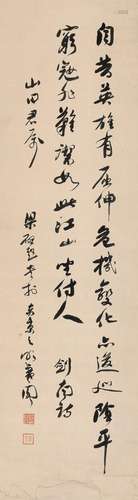 自昔英雄有屈伸危機變化亦逡巡陰平
窮寇非難禦如此江山坐付人 劍南詩
山田君屬
梁啟超書於